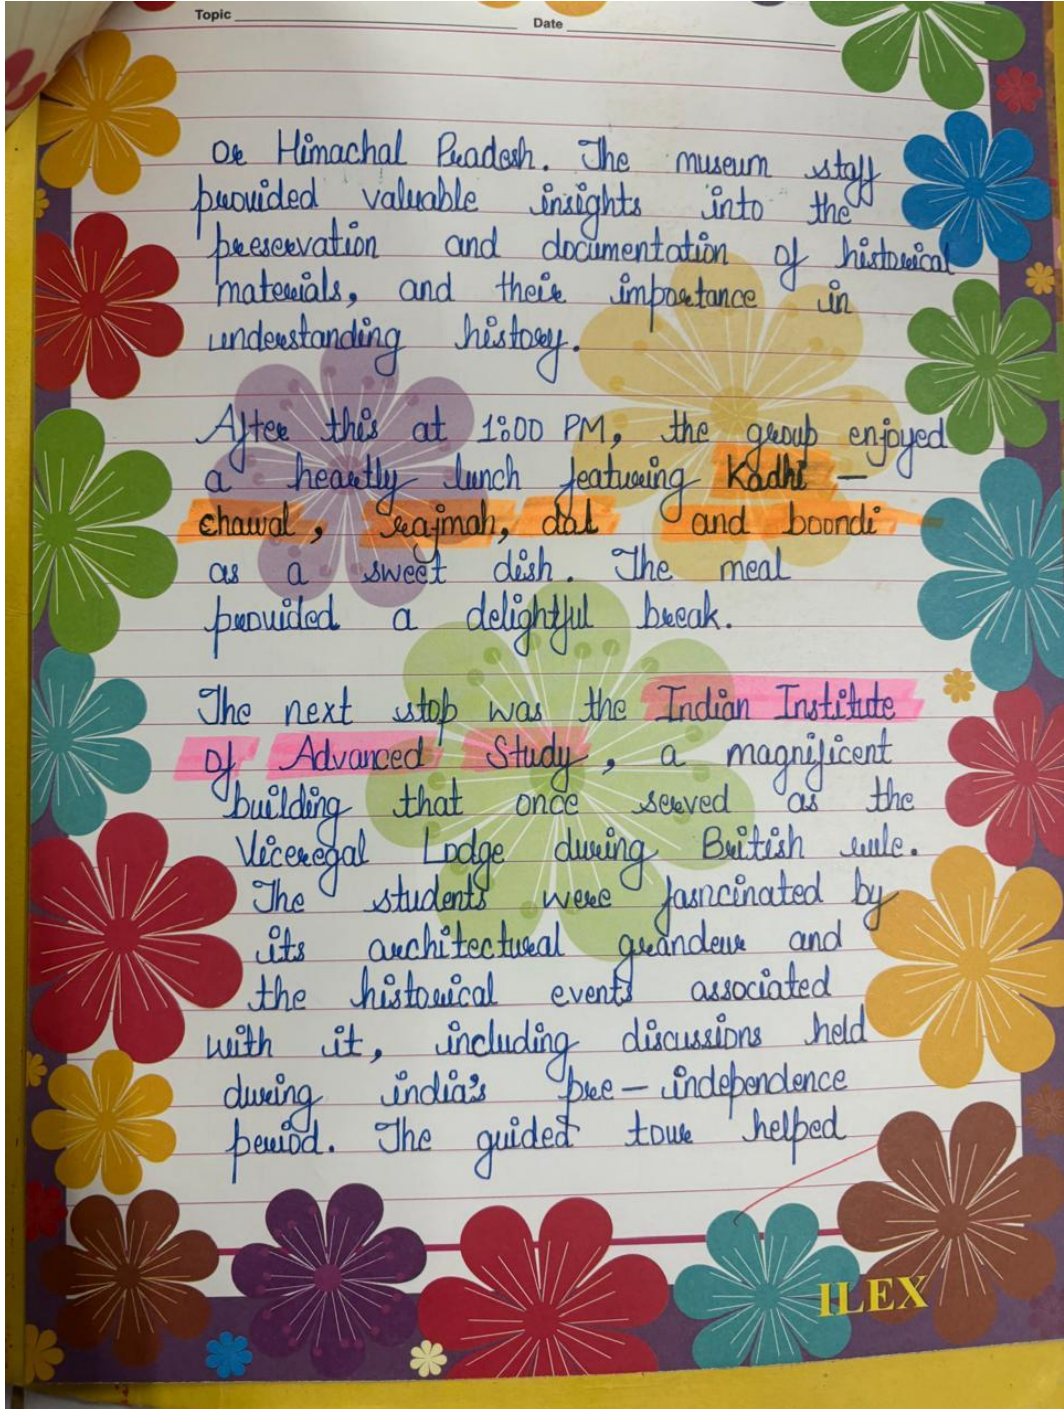 Topic
Date
or Himachal Pradesh. The museum staff
provided valuable insights into the
preservation and documentation of historical
materials, and their importance in
understanding history.
After this at 1:00 PM, the group enjoyed
a heartly lunch featuring Kadhi -
chawal, rajmah, dal and boondi
as a sweet dish. The meal
provided a delightful break.
The next stop was the Indian Institute
of Advanced Study, a magnificent
building that once served as the
Viceregal Lodge during British rule.
The students were fasncinated by
its architectural grandeur and
the historical events associated
with it, including discussions held
during india's pre-independence
period. The guided tour helped
ILEX